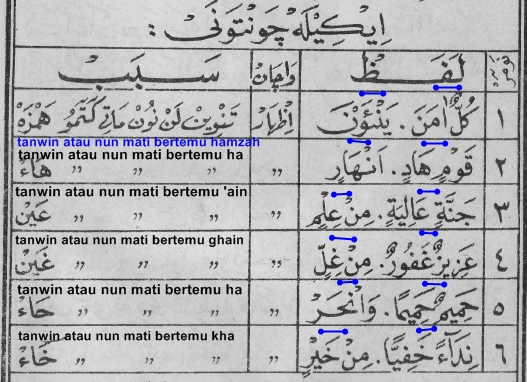 اِيكيله چونتوني :
نومر لَفَظْ وَاچَانْ سَبَبْ
١ كُلٌّ اٰمَنَ . يَنْئَوْنَ اِظْهَارْ تَنْوِيْنْ لَنْ نُوْنْ مَاتِي كَتَمُوْ هَمْزَهْ
tanwin atau nun mati bertemu hamzah
٢ قَوْمٍ هَادٍ . اَنْهَارٍ „ „ „ „ هَاءْ
tanwin atau nun mati bertemu ha
٣ جَنَّةٍ عَالِيَةٍ . مِنْ عِلْمٍ „ „ „ „ عَيْنْ
tanwin atau nun mati bertemu 'ain
٤ عَزِيْزٌ غَفُوْرٌ . مِنْ غِلٍّ „ „ „ „ غَيْنْ
tanwin atau nun mati bertemu ghain
٥ حَمِيْمٌ حَمِيْمًا . وَانْحَرْ „ „ „ „ حَاءْ
tanwin atau nun mati bertemu ha
٦ نِدَاءً خَفِيًّا . مِنْ خَيْرٍ „ „ „ „ خَاءْ
tanwin atau nun mati bertemu kha